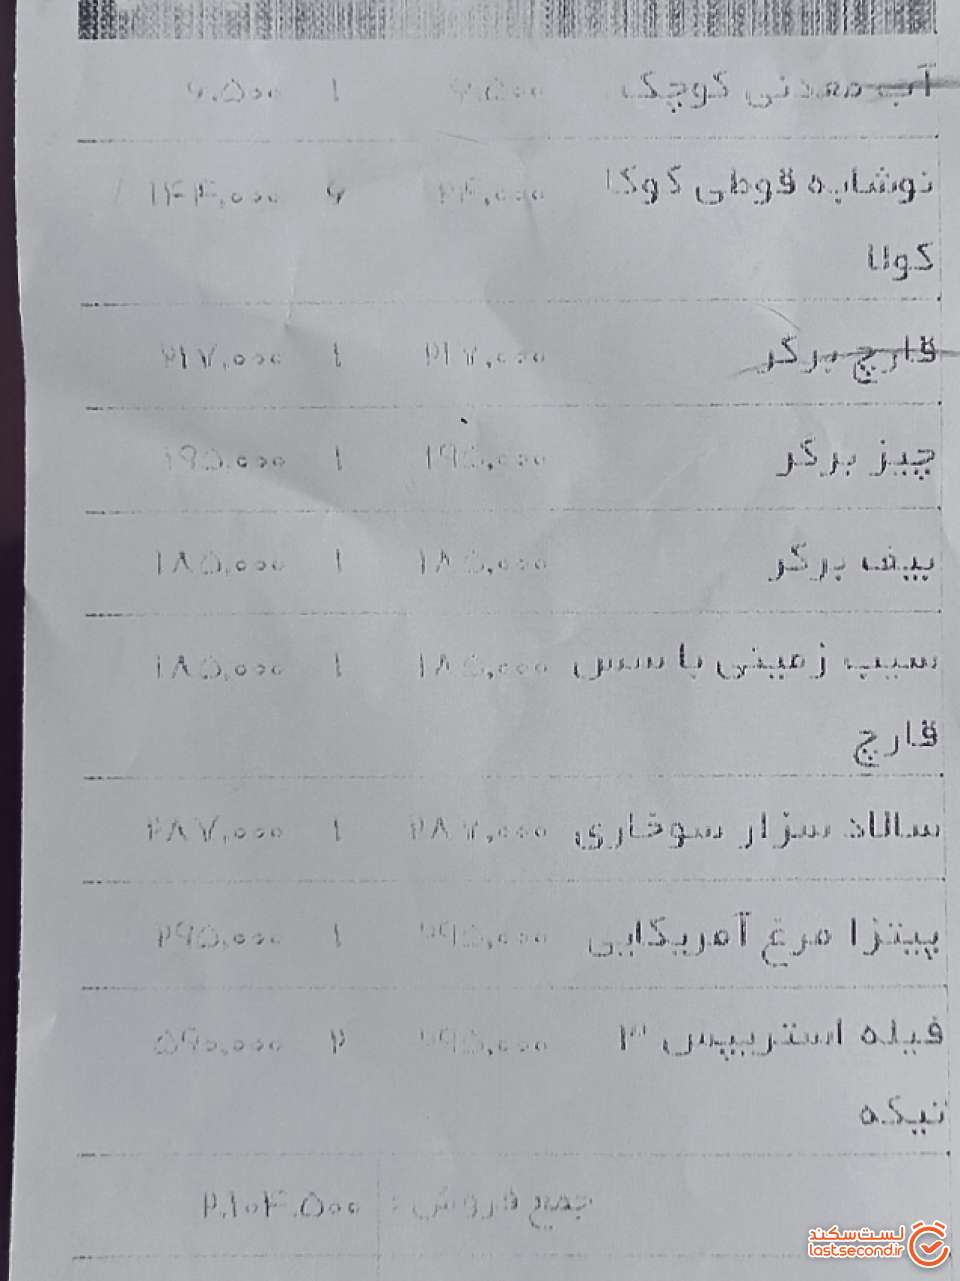 آب معدنی کوچک ۶,۵۰۰ ۱ ۶,۵۰۰
نوشابه قوطی کوکا ۲۴,۰۰۰ ۶ ۱۴۴,۰۰۰
کولا
قارچ برگر ۲۱۷,۰۰۰ ۱ ۲۱۷,۰۰۰
چیز برگر ۱۹۵,۰۰۰ ۱ ۱۹۵,۰۰۰
بیف برگر ۱۸۵,۰۰۰ ۱ ۱۸۵,۰۰۰
سیب زمینی با سس ۱۸۵,۰۰۰ ۱ ۱۸۵,۰۰۰
قارچ
سالاد سزار سوخاری ۲۸۷,۰۰۰ ۱ ۲۸۷,۰۰۰
پیتزا مرغ آمریکایی ۲۹۵,۰۰۰ ۱ ۲۹۵,۰۰۰
فیله استریپس ۳ ۲۹۵,۰۰۰ ۲ ۵۹۰,۰۰۰
تیکه
جمع فروش : ۲,۱۰۴,۵۰۰
لست‌سکند
lastsecond.ir